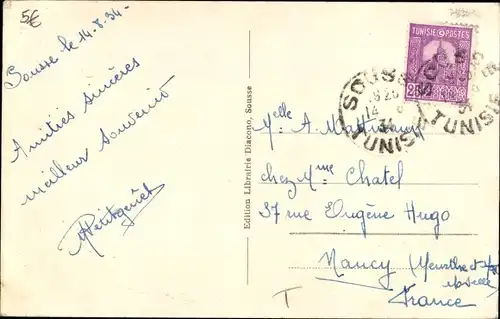 5€
Sousse le 14-8-34-
Amitiés sincères
meilleur souvenir
Edition Librairie Diacono, Sousse
TUNISIE POSTES
SOUSSE
TUNISIE
SOUSSE
TUNISIE
Melle A.
chez Mme Chatel
37 rue Eugène Hugo
Nancy (Meurthe et
Moselle)
France
T